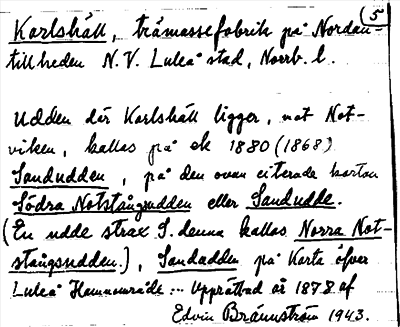 (5
Karlshäll, trämassefabrik på Nordan-
tillheden N.V. Luleå stad, Norrb. l.
Udden där Karlshäll ligger, mot Not-
viken, kallas på ek 1880 (1868)
Sandudden, på den ovan citerade kartan
Södra Notstångsudden eller Sandudde.
(En udde strax S. denna kallas Norra Not-
stångsudden.), Sandudden på Karta öfver
Luleå Hamnområde ... Upprättad år 1878 af
Edvin Brännström 1943.